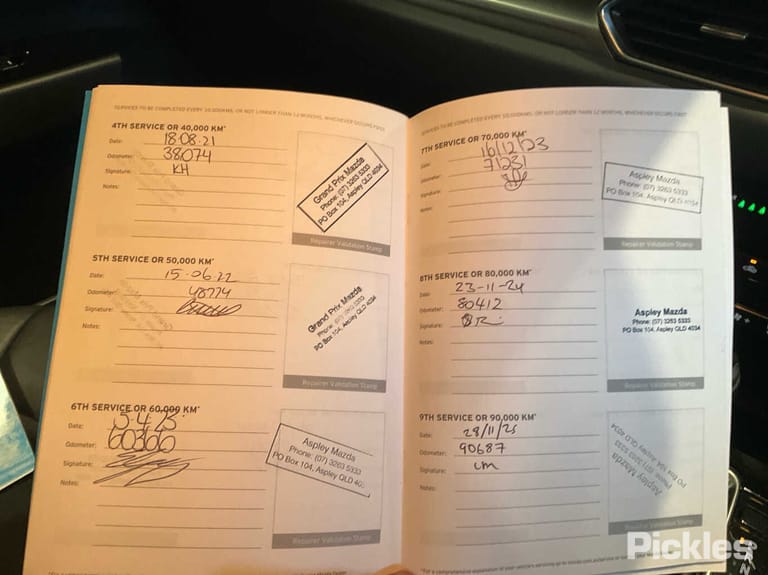 SERVICES TO BE COMPLETED EVERY 10,000KMS, OR NOT LONGER THAN 12 MONTHS, WHICHEVER OCCURS FIRST
4TH SERVICE OR 40,000 KM*
Date: 18.08.21
Odometer: 38074
Signature: KH
Notes:
Grand Prix Mazda
Phone: (07) 3263 5333
PO Box 104, Aspley QLD 4034
Repairer Validation Stamp
5TH SERVICE OR 50,000 KM*
Date: 15.06.22
Odometer: 48774
Signature:
Notes:
Grand Prix Mazda
Phone: (07) 3263 5333
PO Box 104, Aspley QLD 4034
Repairer Validation Stamp
6TH SERVICE OR 60,000 KM*
Date:
Odometer: 60366
Signature:
Notes:
Aspley Mazda
Phone: (07) 3263 5333
PO Box 104, Aspley QLD
Repairer Validation Stamp
SERVICES TO BE COMPLETED EVERY 10,000KMS, OR NOT LONGER THAN 12 MONTHS, WHICHEVER OCCURS FIRST
7TH SERVICE OR 70,000 KM*
Date: 16/12/23
Odometer: 71231
Signature:
Notes:
Aspley Mazda
Phone: (07) 3263 5333
PO Box 104, Aspley QLD 4034
Repairer Validation Stamp
8TH SERVICE OR 80,000 KM*
Date: 23-11-24
Odometer: 80412
Signature:
Notes:
Aspley Mazda
Phone: (07) 3263 5333
PO Box 104, Aspley QLD 4034
Repairer Validation Stamp
9TH SERVICE OR 90,000 KM*
Date: 28/11/25
Odometer: 90687
Signature: cm
Notes:
Aspley Mazda
Phone: (07) 3263 5333
PO Box 104, Aspley QLD 4034
Repairer Validation Stamp
Pickles